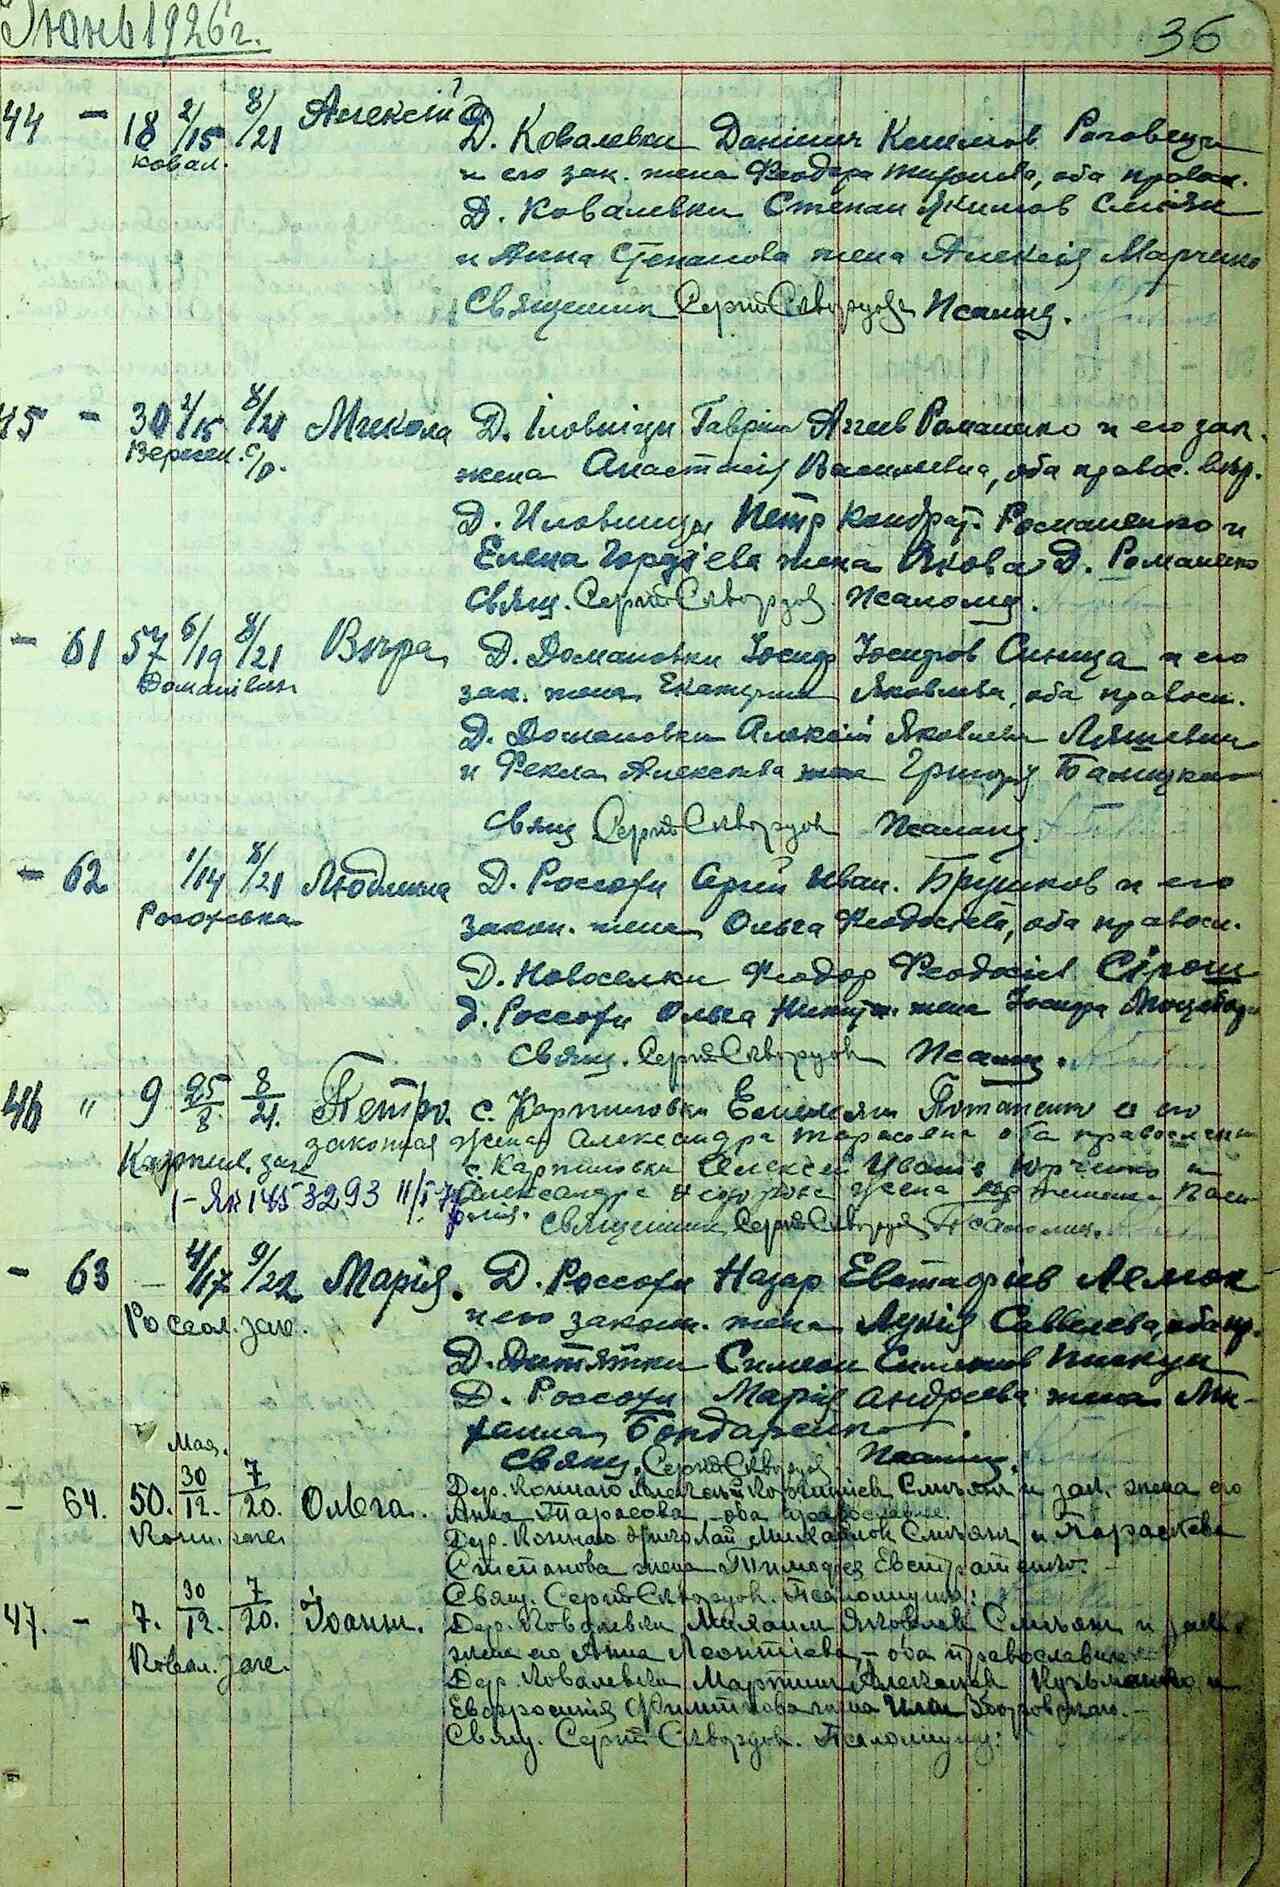 Іюнь 1926 г.
36
44 - 18 2/15 8/21 Алексій Д. Ковалевки Даниил Климов Роговец
ковал.
и его зак. жена Феодора, оба правос.
Д. Ковалевки Степан Якимов Сміян
и Анна Степанова жена Алексія Марченко
Священник Сергій Скворцов Псаломщ.
45 - 30 2/15 8/21 Микола Д. Іловниці Гавріил Романенко и его зак.
Вересн. с/р.
жена Анастасія Васильевна, оба правос. вѣр.
Д. Иловницы Петр Кондрат. Романенко и
Елена Гордіева жена Якова Д. Романенко
Свящ. Сергій Скворцов Псаломщ.
- 61 57 6/19 8/21 Вѣра Д. Домановки Іосиф Іосифов Синица и его
Доманівки
зак. жена Екатерина Яковлева, оба правосл.
Д. Домановки Алексій Яковлев
и Фекла Алексеева жена Григорія
Свящ Сергій Скворцов Псаломщ
- 62 1/14 8/21 Людмила Д. Россохи Сергій Иван. Брушков и его
Розсохівка
закон. жена Ольга Феодосіева, оба правосл.
Д. Новоселки Феодор Феодосіев Сірош
Д. Россохи Ольга жена Іосифа
Свящ. Сергій Скворцов Псаломщ.
46 " 9 25/8. 8/21. Петро. с. Карпиловки Емельян Потапенко и его
законная жена Александра Тарасовна оба православны
Карпил. заг.
с. Карпиловки Алексей Иванов Юрченко и
1-Як 145 3293 11/I-7
Александра жена
Священник Сергій Скворцов Псаломщ.
- 63 - 4/17 9/22 Марія. Д. Россохи Назар Евстафіев Лемок
и его законн. жена Лукія Савелева, оба пр.
Россох. заг.
Д. Дитятки Симеон Симонов Пискун
Д. Россохи Марія Андреева жена Ми-
хаила Бондаренко
Свящ. Сергій Скворцов Псаломщ.
Мая.
- 64. 50. 30/12. 7/20. Ольга. Дер. Копчаго Сміян и зак. жена его
Анна Тарасова - оба православные.
Копч. заг.
Дер. Копчаго Николай Михайлов Сміян и Параскева
Степанова жена Тимофея Евстратенко.
Свящ. Сергій Скворцов. Псаломщик:
47. - 7. 30/12. 7/20. Іоанн. Дер. Ковалевки Михаил Яковлев Сміян и зак.
жена его Анна Леонтіева, - оба православные
Ковал. заг.
Дер. Ковалевки Мартин Алексеев Кузьменко и
Евфросинія Филиппова жена Ильи Зборовскаго.
Свящ. Сергій Скворцов. Псаломщик: